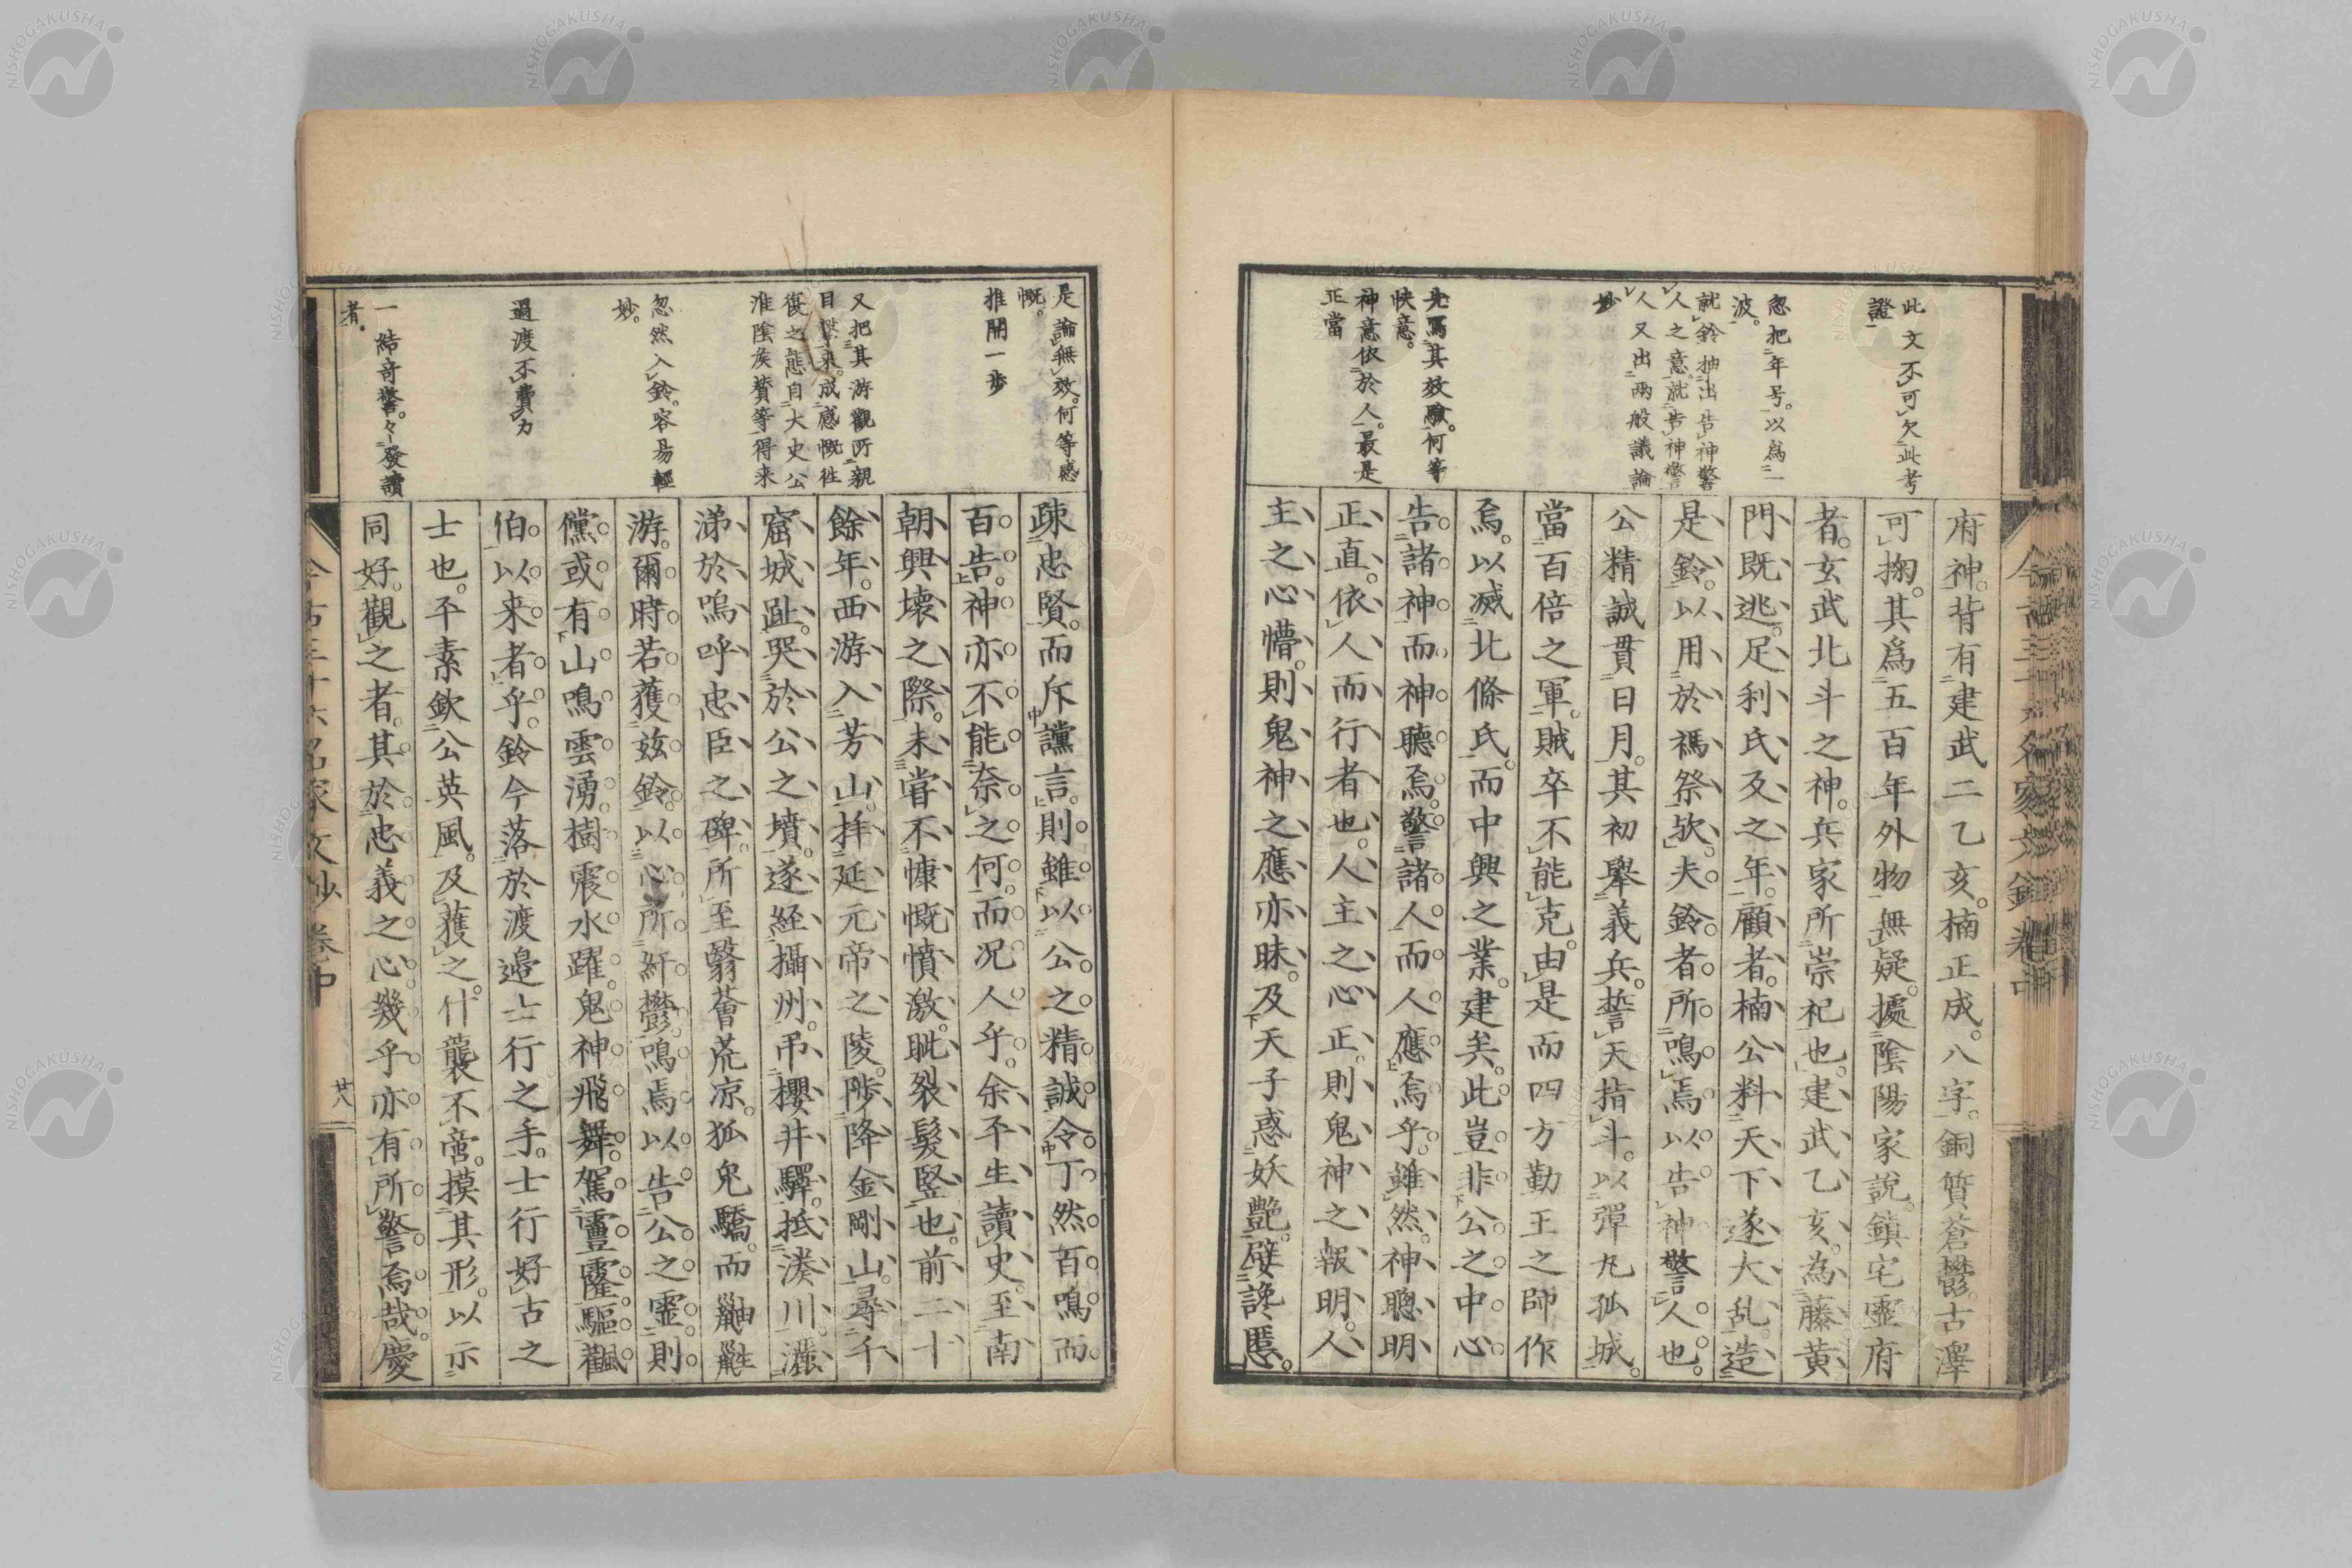 此文不可欠此考
證
忽把年号以爲一
波。
就鈴抽出告神警
人之意。就告神警
人又出兩般議論
妙
先寫其效驗。何等
快意。
神意依於人。最是
正當
府神。背有建武二乙亥。楠正成。八字。銅質蒼鬱。古澤
可掬。其爲五百年外物無疑。據陰陽家説。鎮宅靈府
者。玄武北斗之神。兵家所崇祀也。建武乙亥。為藤黄
門既逃。足利氏及之年。顧者。楠公料天下遂大乱。造
是鈴。以用於禡祭歟。夫鈴者所鳴焉以告神警人也。
公精誠貫日月。其初舉義兵。誓天指斗。以彈丸孤城。
當百倍之軍。賊卒不能克。由是而四方勤王之師作
焉。以滅北條氏。而中興之業。建矣。此豈非公之中心
告諸神而神聽焉。警諸人而人應焉乎。雖然。神聰明
正直。依人而行者也。人主之心正。則鬼神之報明。人
主之心懵。則鬼神之應亦昧。及天子惑妖艷。嬖讒慝。
是論無效。何等感
慨。
推開一步
又把其游觀所親
目擊来。成感慨徃
復之態自大史公
淮陰侯贊等得来
忽然入鈴。容易輕
妙。
過渡不費力
一結奇警。々發讀
者。
疎忠賢。而斥讜言。則雖以公之精誠令丁然百鳴而
百告。神亦不能奈之何。而况人乎。余平生讀史。至南
朝興壞之際。未嘗不慷慨憤激。眦裂髮竪也。前二十
餘年。西游入芳山。拝延元帝之陵。陟降金剛山。尋千
窟城趾。哭於公之墳。遂経攝州。吊櫻井驛。抵湊川。灑
涕於嗚呼忠臣之碑。所至翳薈荒凉。狐兎驕。而鼬鼪
游。爾時若獲玆鈴。以心所紆鬱。鳴焉以告公之霊。則
儻或有山鳴雲湧。樹震水躍。鬼神飛舞。駕靈霳驅飌
伯。以来者乎。鈴今落於渡邉士行之手。士行好古之
士也。平素欽公英風。及獲之。什襲不啻。摸其形。以示
同好。觀之者。其於忠義之心。幾乎亦有所警焉哉。慶
今古三十六名家文抄卷中
廿八